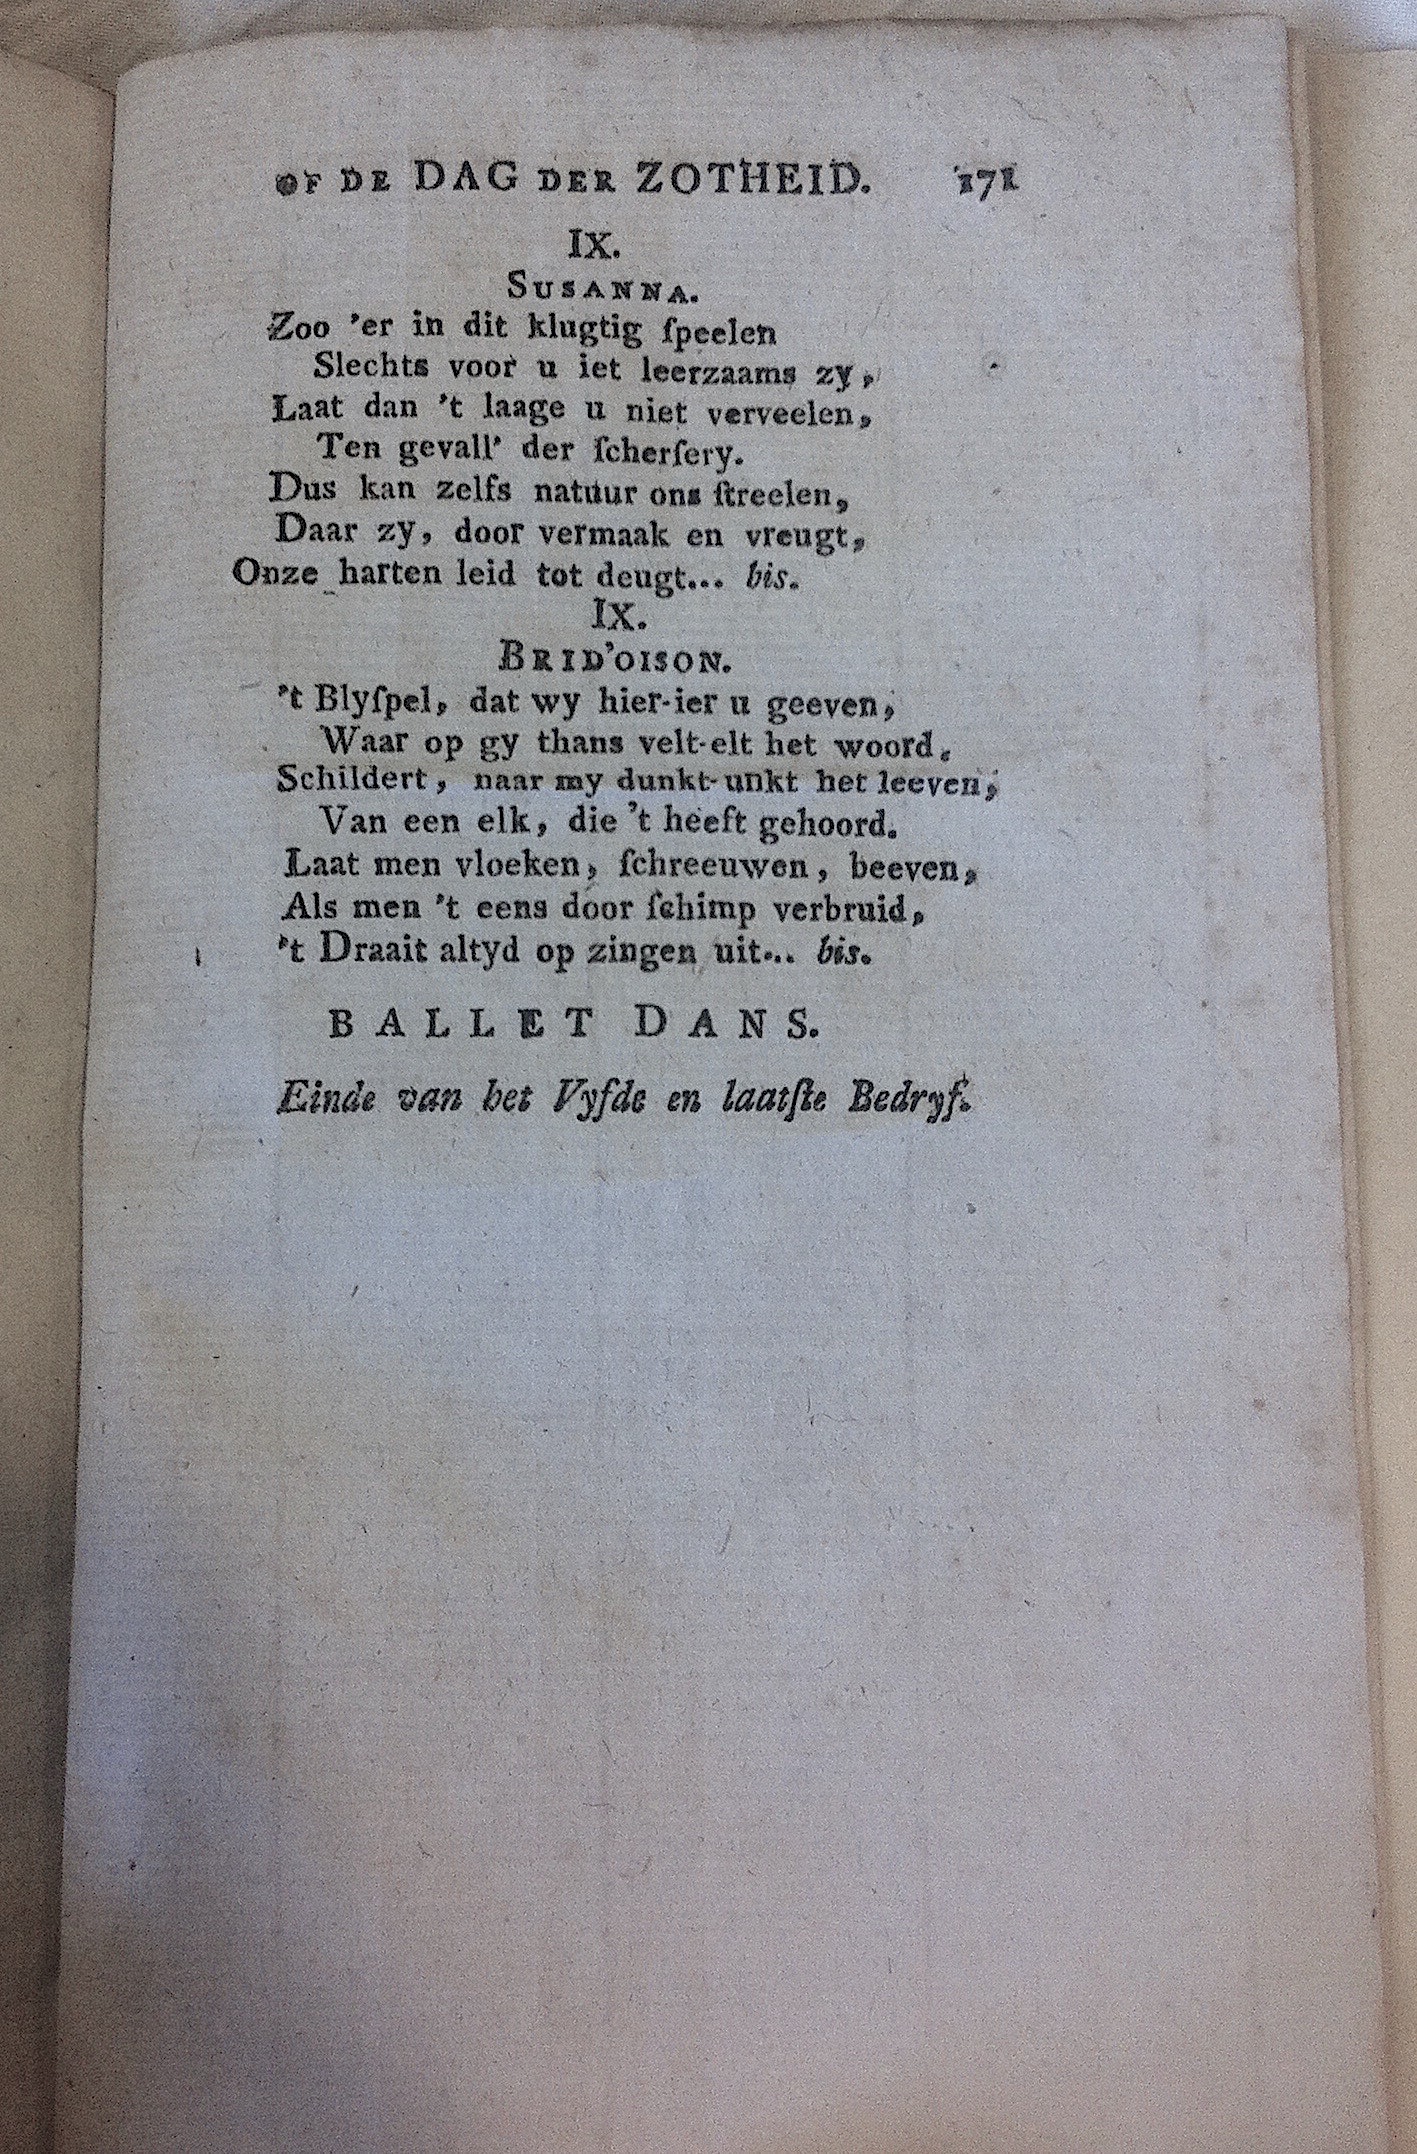 OF DE DAG DER ZOTHEID. 171
IX.
SUSANNA.
Zoo 'er in dit klugtig ſpeelen
Slechts voor u iet leerzaams zy,
Laat dan 't laage u niet verveelen,
Ten gevall' der ſcherſery.
Dus kan zelfs natuur ons ſtreelen,
Daar zy, door vermaak en vreugt,
Onze harten leid tot deugt... bis.
IX.
BRID'OISON.
't Blyſpel, dat wy hier-ier u geeven,
Waar op gy thans velt-elt het woord.
Schildert, naar my dunkt-unkt het leeven,
Van een elk, die 't heeft gehoord.
Laat men vloeken, ſchreeuwen, beeven,
Als men 't eens door ſchimp verbruid,
't Draait altyd op zingen uit... bis.
BALLET DANS.
Einde van het Vyfde en laatſte Bedryf.